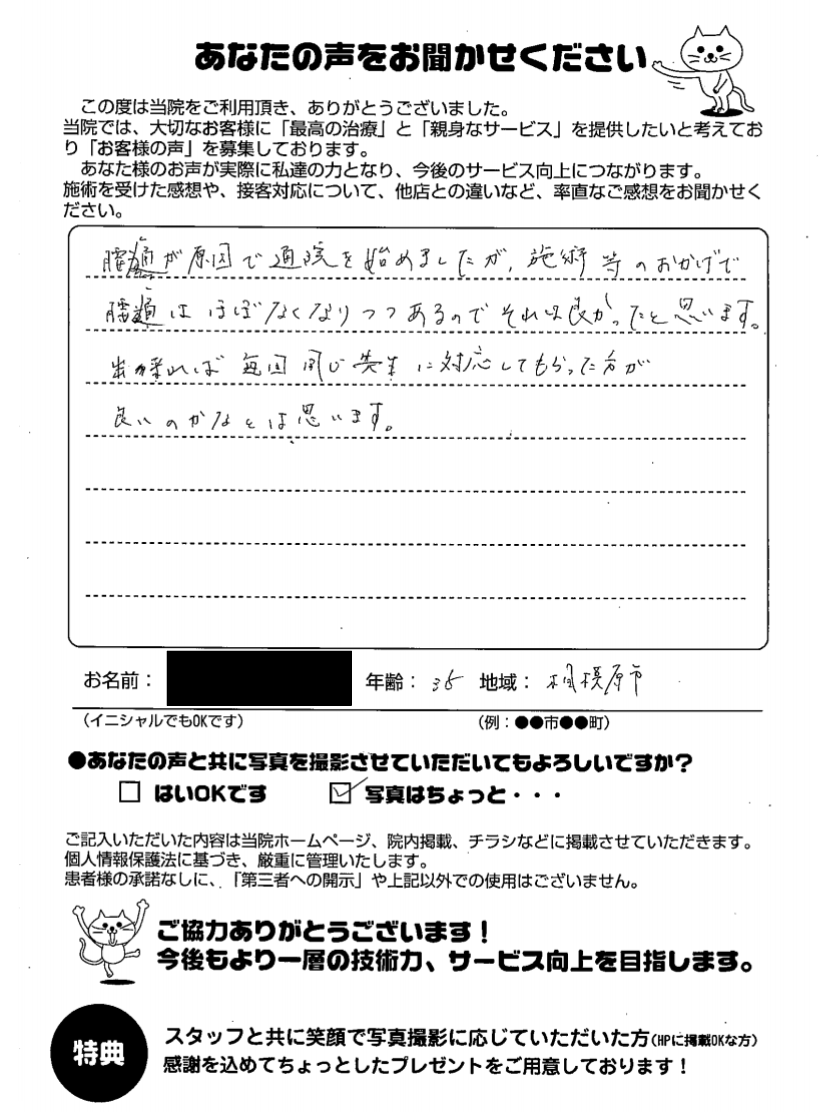 あなたの声をお聞かせください
この度は当院をご利用頂き、ありがとうございました。
当院では、大切なお客様に「最高の治療」と「親身なサービス」を提供したいと考えてお
り「お客様の声」を募集しております。
あなた様のお声が実際に私達の力となり、今後のサービス向上につながります。
施術を受けた感想や、接客対応について、他店との違いなど、率直なご感想をお聞かせく
ださい。
腰痛が原因で通院を始めましたが、施術等のおかげで
腰痛はほぼなくなりつつあるのでそれは良かったと思います。
出来れば毎回同じ先生に対応してもらった方が
良いのかなとは思います。
お名前： 年齢：35 地域：相模原市
（イニシャルでもOKです） （例：●●市●●町）
●あなたの声と共に写真を撮影させていただいてもよろしいですか？
□ はいOKです ☑ 写真はちょっと・・・
ご記入いただいた内容は当院ホームページ、院内掲載、チラシなどに掲載させていただきます。
個人情報保護法に基づき、厳重に管理いたします。
患者様の承諾なしに、「第三者への開示」や上記以外での使用はございません。
ご協力ありがとうございます！
今後もより一層の技術力、サービス向上を目指します。
特典
スタッフと共に笑顔で写真撮影に応じていただいた方（HPに掲載OKな方）
感謝を込めてちょっとしたプレゼントをご用意しております！